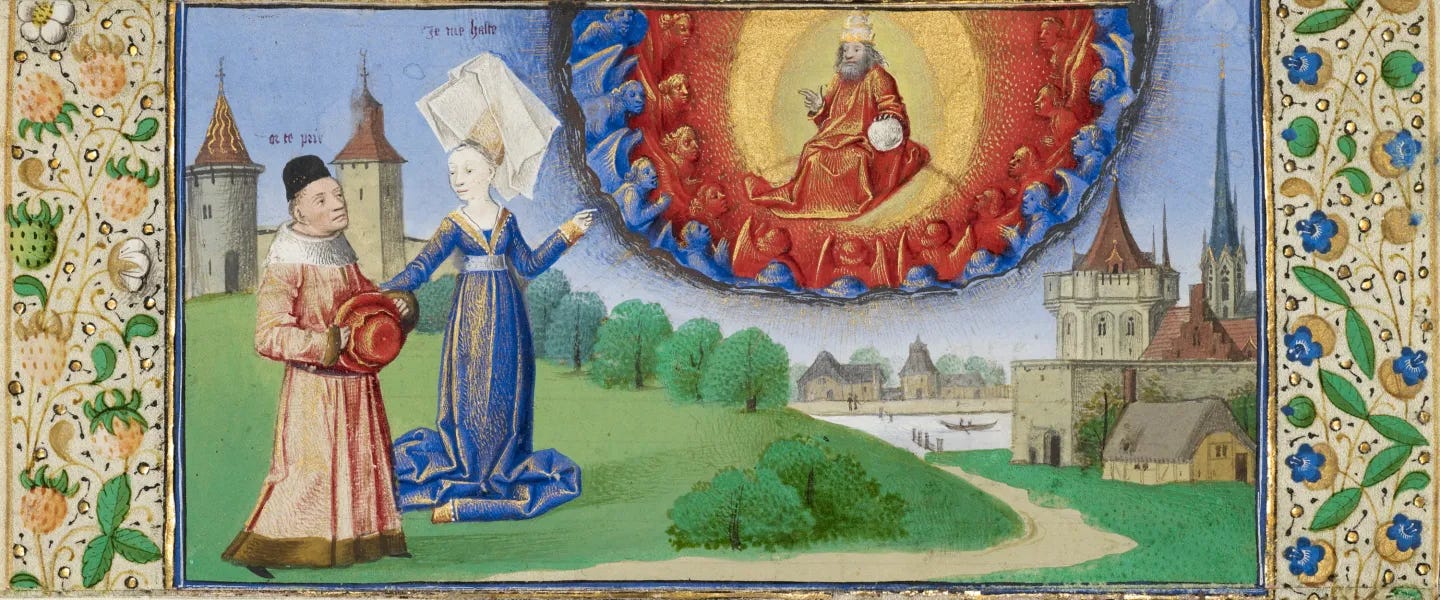 Je me haste
or te prie